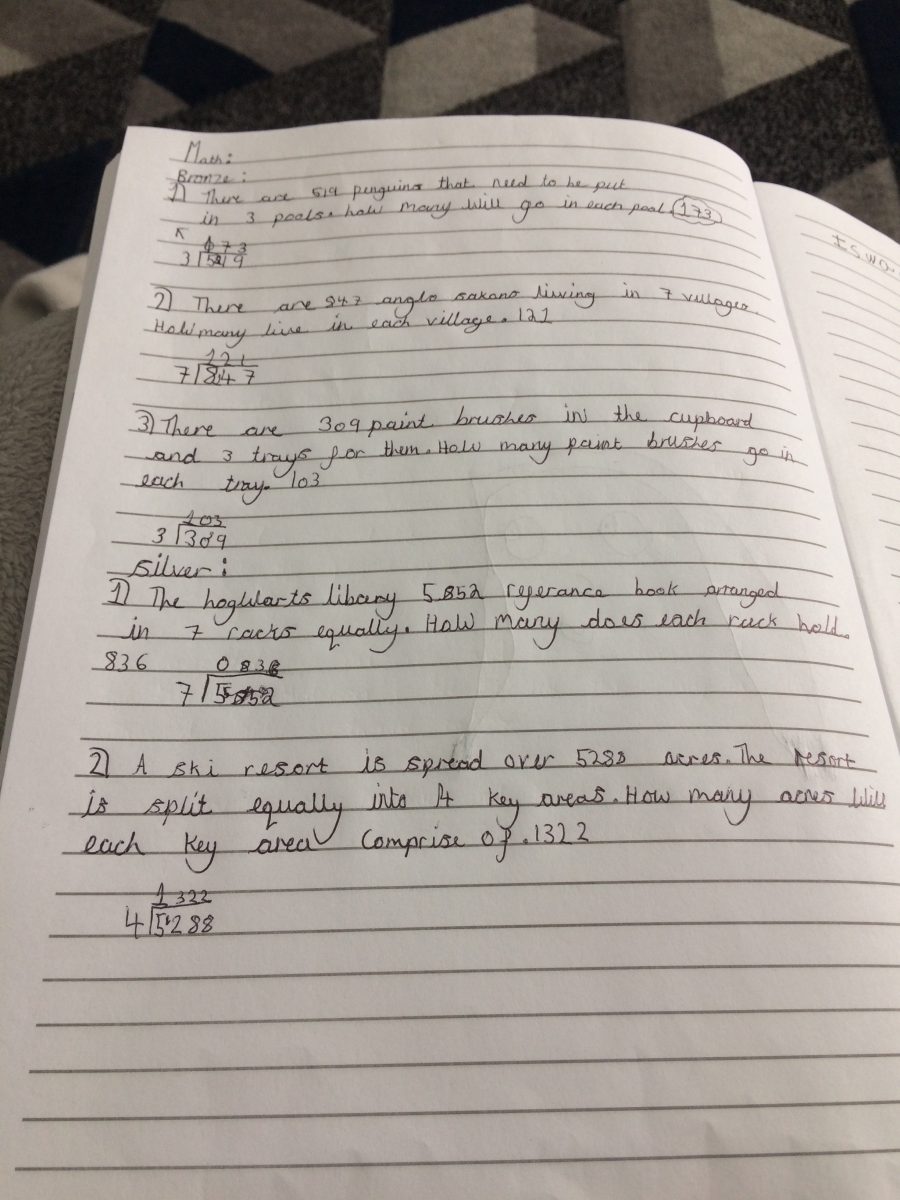 Math:
Bronze:
1) There are 519 penguins that need to be put
in 3 pools. how many will go in each pool. 173
173
3 519
2) There are 847 anglo saxons living in 7 villages.
How many live in each village. 121
121
7 847
3) There are 309 paint brushes in the cupboard
and 3 trays for them. How many paint brushes go in
each tray. 103
103
3 309
silver:
1) The hogwarts library 5852 referance book arranged
in 7 racks equally. How many does each rack hold.
836 0836
7 5852
2) A ski resort is spread over 5288 acres. The resort
is split equally into 4 key areas. How many acres will
each key area comprise of. 1322
1322
4 5288